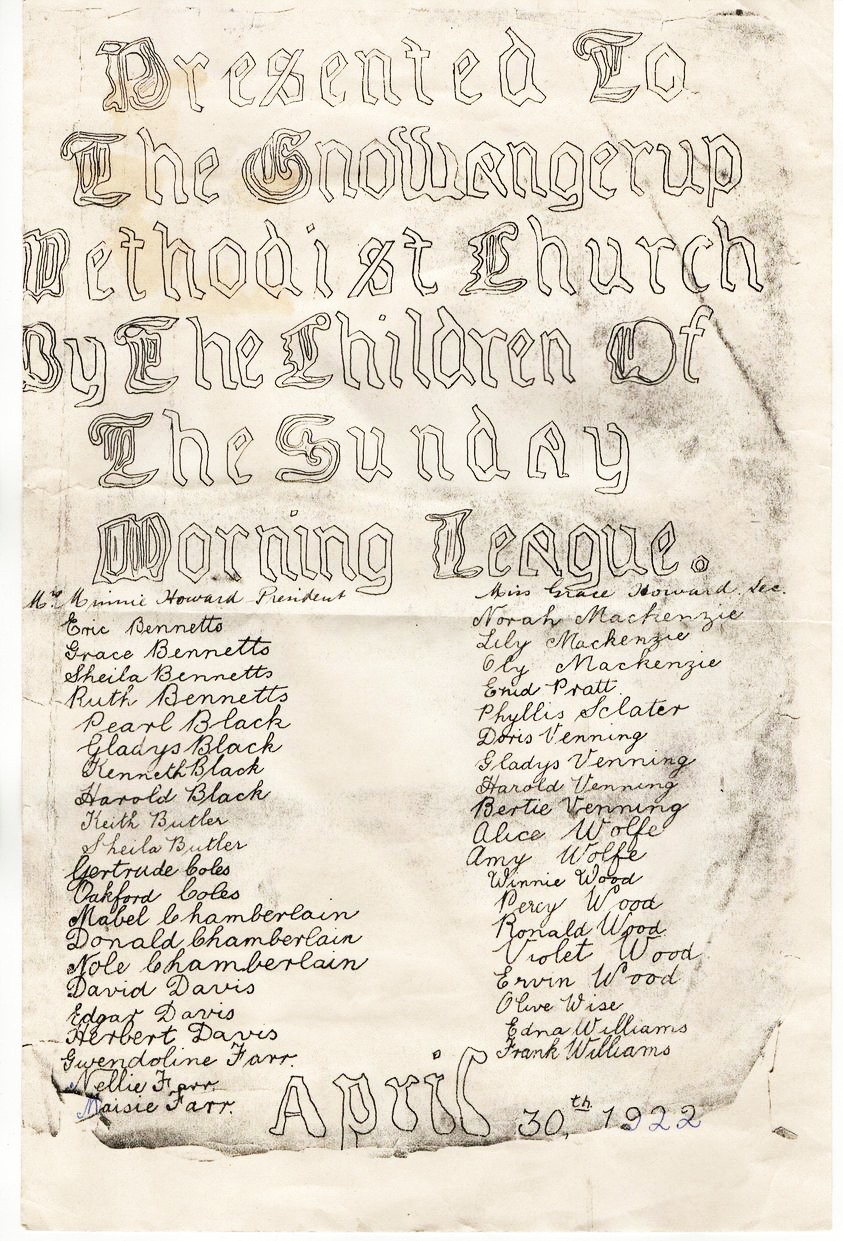 Presented To
The Gnowangerup
Methodist Church
By The Children Of
The Sunday
Morning League.
Mrs Minnie Howard President
Eric Bennetts
Grace Bennetts
Sheila Bennetts
Ruth Bennetts
Pearl Black
Gladys Black
Kenneth Black
Harold Black
Keith Butler
Sheila Butler
Gertrude Coles
Oakford Coles
Mabel Chamberlain
Donald Chamberlain
Nole Chamberlain
David Davis
Edgar Davis
Herbert Davis
Gwendoline Farr.
Nellie Farr.
Maisie Farr.
Miss Grace Howard, Sec.
Norah Mackenzie
Lily Mackenzie
Oly Mackenzie
Enid Pratt.
Phyllis Sclater
Doris Venning
Gladys Venning
Harold Venning
Bertie Venning
Alice Wolfe
Amy Wolfe
Winnie Wood
Percy Wood
Ronald Wood.
Violet Wood
Ervin Wood
Olive Wise
Edna Williams
Frank Williams
April 30th, 1922